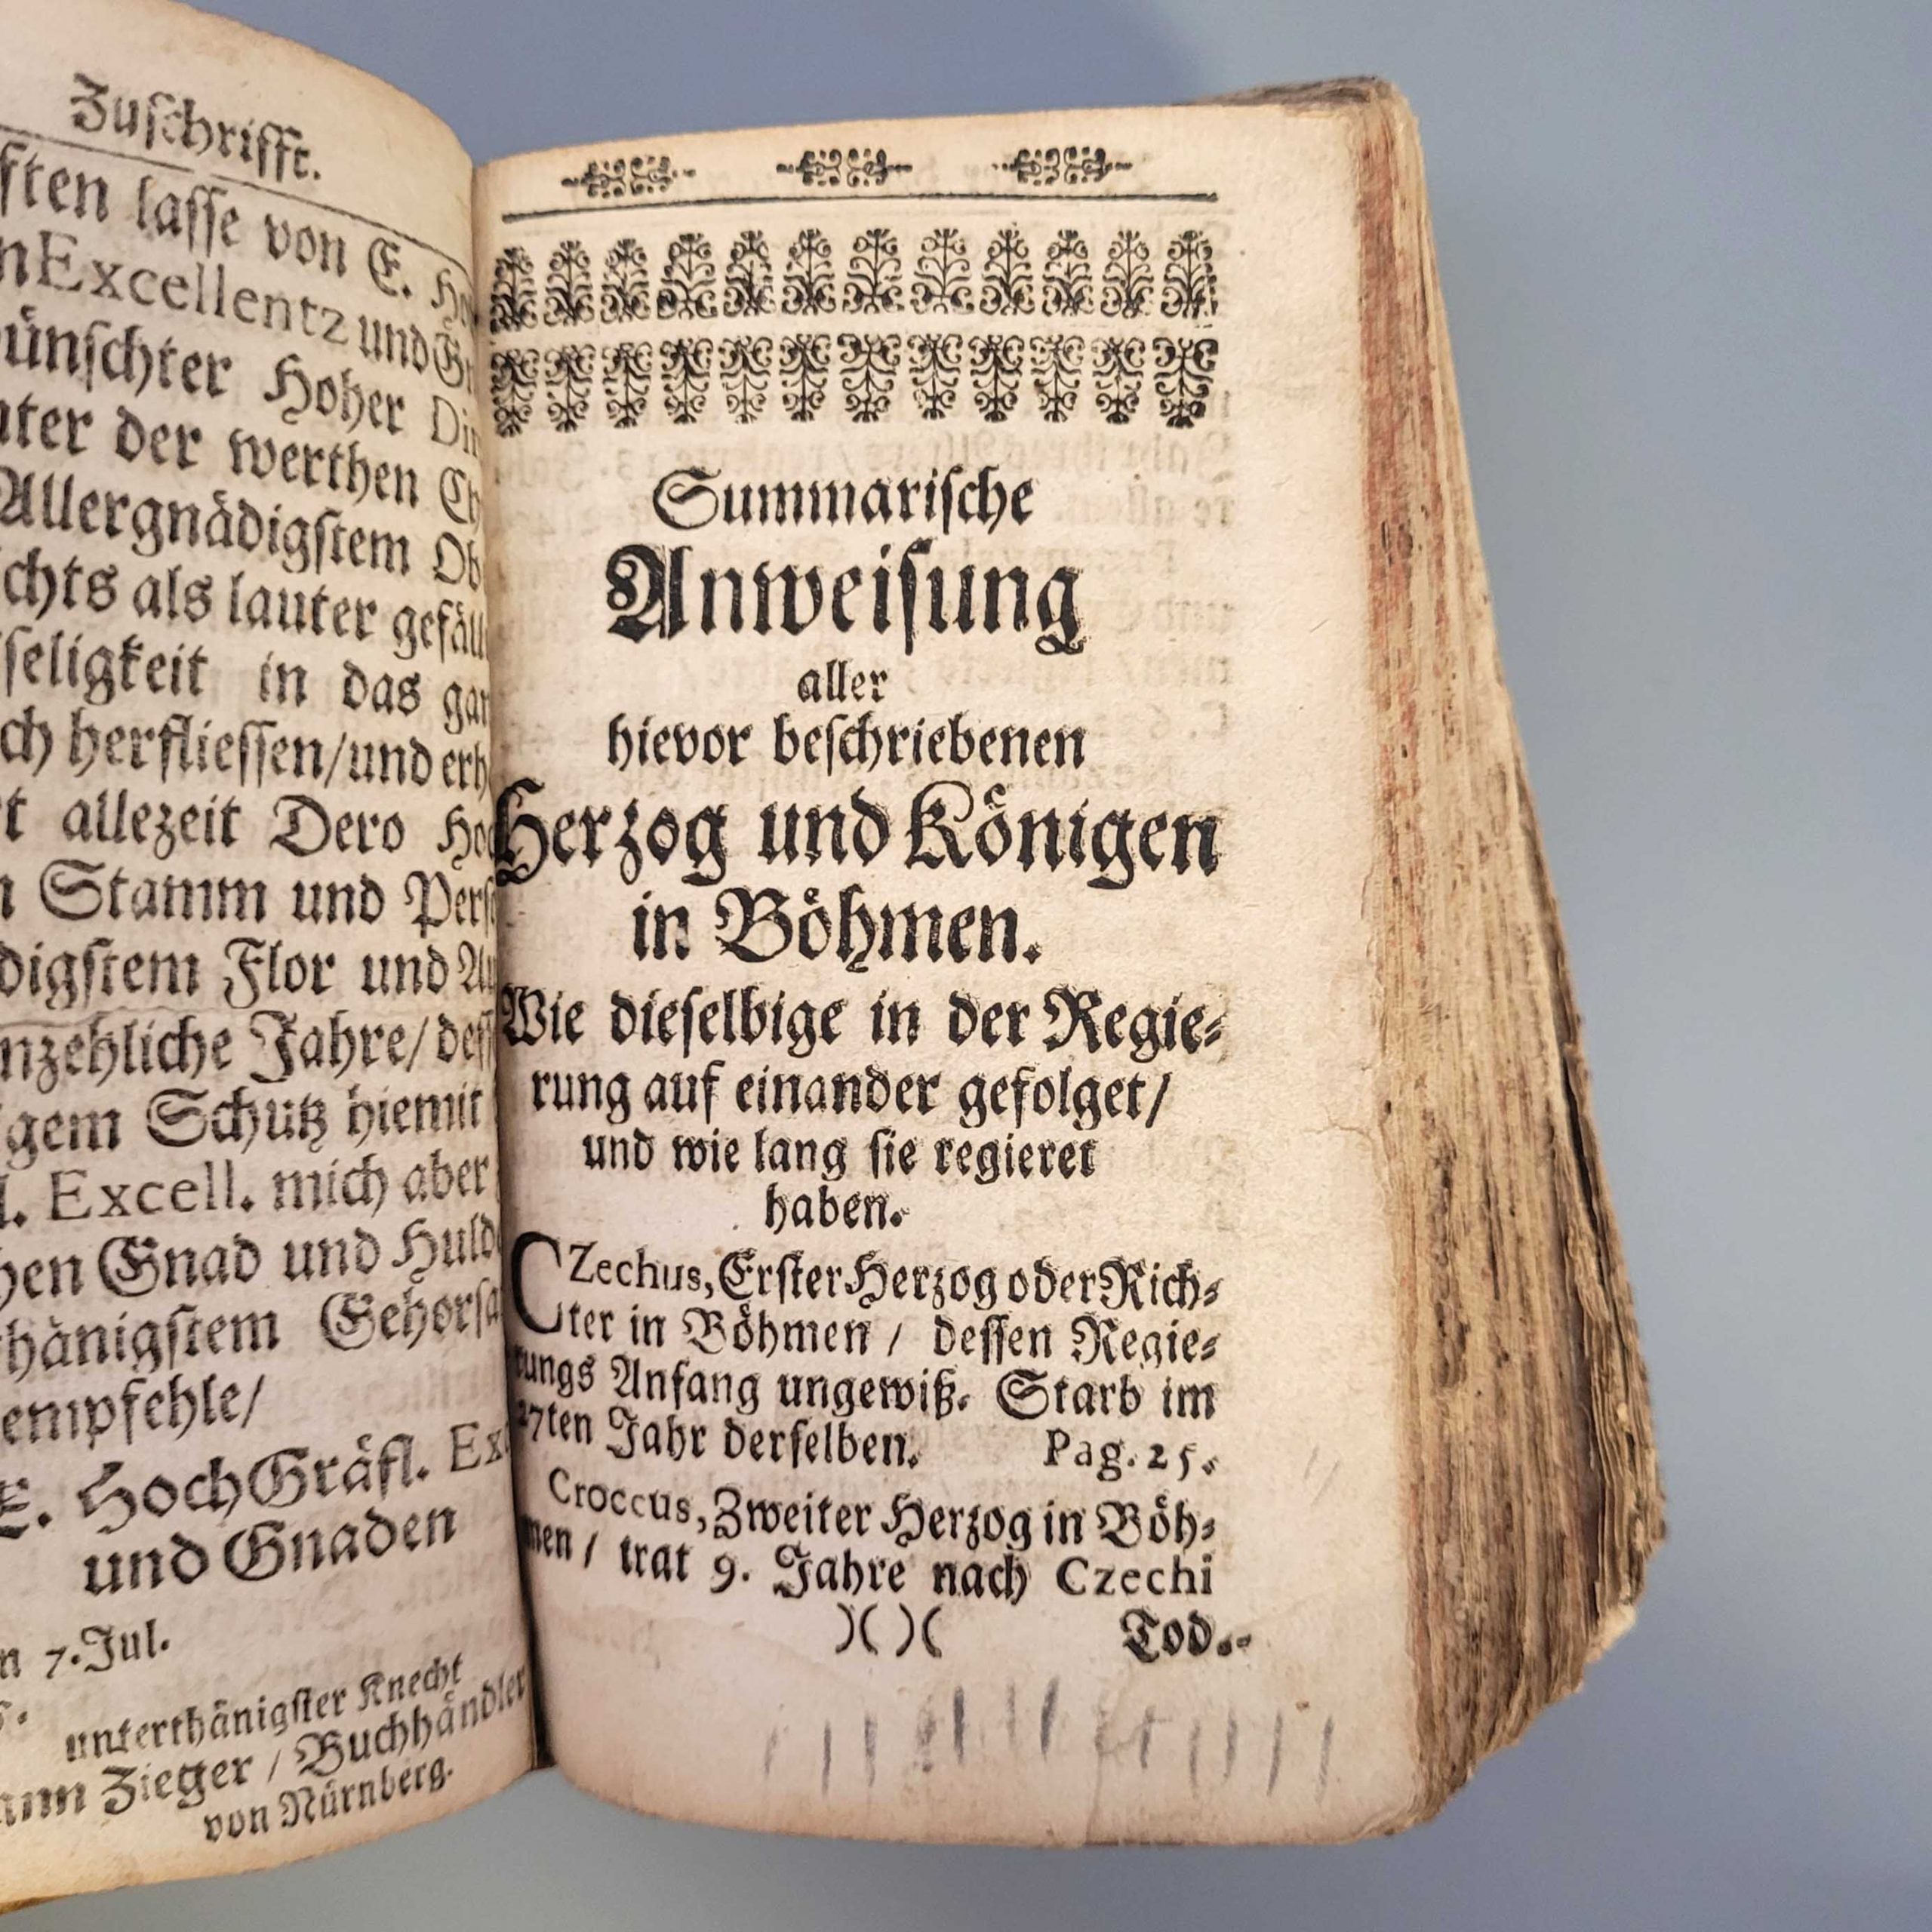 Zuschrifft.
lasse von E.
Excellentz und
Hoher
der werthen
Allergnädigstem
als lauter
in das
herfliessen/und
allezeit Dero
Stamm und
Flor und
Jahre/
Schutz hiemit
Excell. mich aber
Gnad und Huld
empfehle/
E. HochGräfl.
und Gnaden
7. Jul.
unterthänigster Knecht
Zieger / Buchhändler
von Nürnberg.
Summarische
Anweisung
aller
hievor beschriebenen
Herzog und Königen
in Böhmen.
Wie dieselbige in der Regie⸗
rung auf einander gefolget/
und wie lang sie regieret
haben.
CZechus, Erster Herzog oder Rich⸗
ter in Böhmen / dessen Regie⸗
rungs Anfang ungewiß. Starb im
27ten Jahr derselben. Pag. 25.
Croccus, Zweiter Herzog in Böh⸗
men / trat 9. Jahre nach Czechi
)( )( Tod.